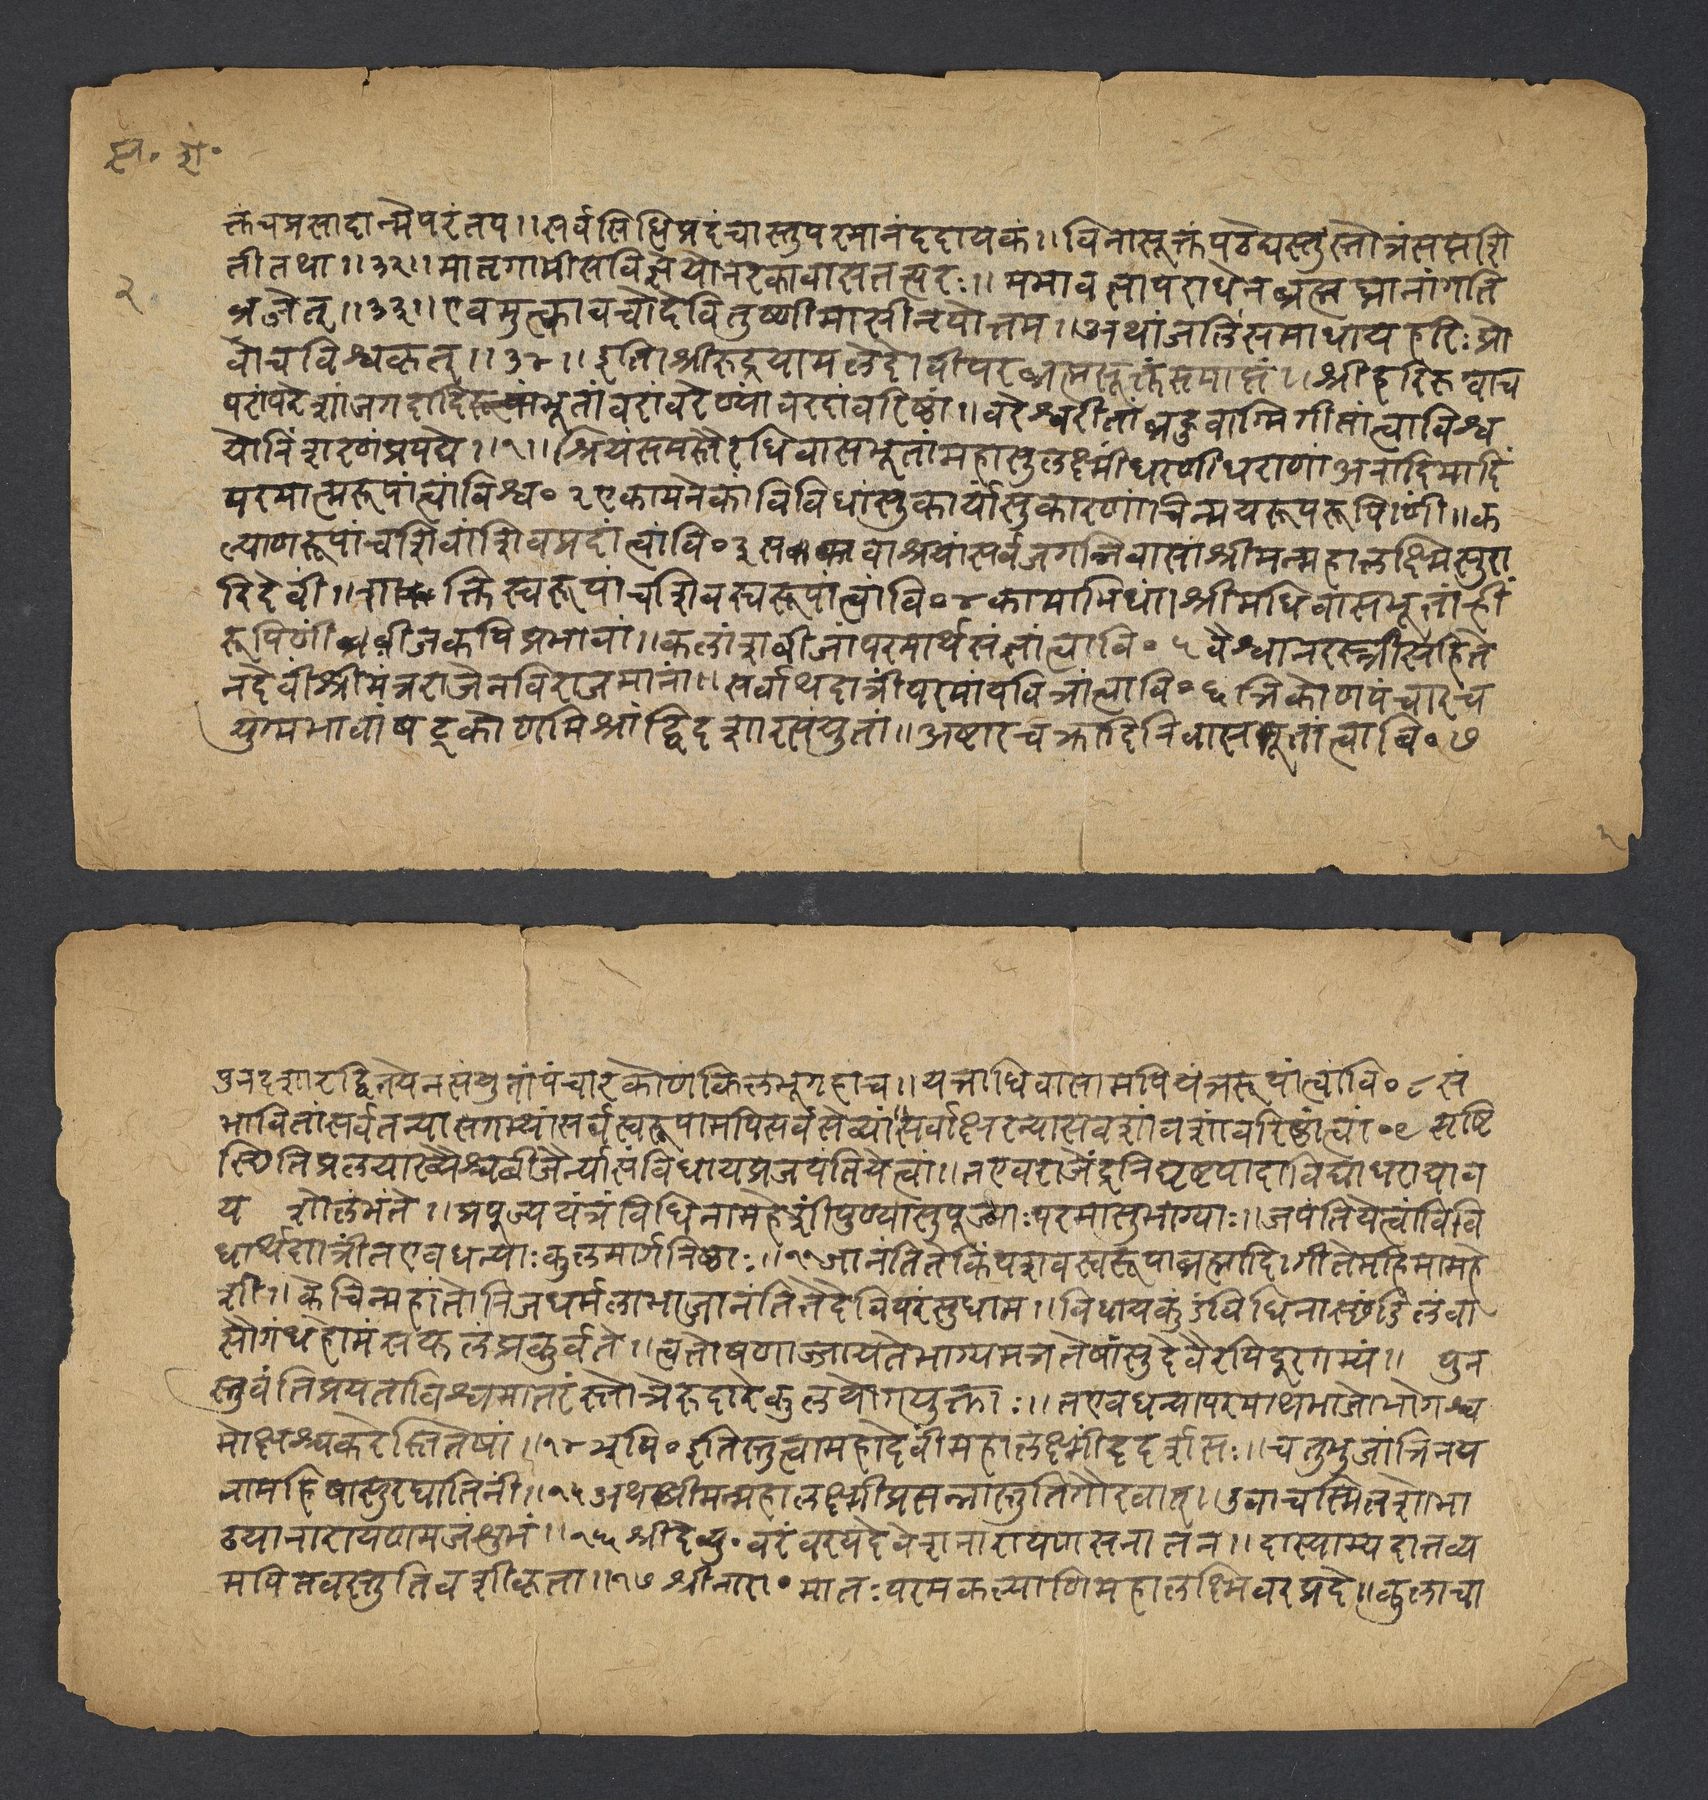 सू. श.
२
क्तंचप्रसादान्मेपरंतप॥सर्वसिधिप्रदंचास्तुपरमानंददायकं॥विनासूक्तंपठेद्यस्तुस्तोत्रंसप्तशि
तीतथा॥३२॥मातृगामीसविज्ञेयोनरकावासतत्परः॥ममावज्ञापराधेनब्रह्मघ्नानांगतिं
व्रजेत्॥३३॥एवमुत्कावचोदेवितुष्णीमासीन्नृपोत्तम॥अथांजलिंसमाधायहरिःप्रो
वाचविश्वकृत्॥३४॥इतिश्रीरुद्रयामलेदेवीपरब्रह्मसूक्तंसमाप्तं॥श्रीहरिरुवाच
परांपरेशांजगदादिभूतांवरांवरेण्यांवरदांवरिष्ठां॥वरेश्वरीतांबहुवाग्मिगीतांत्वांविश्व
योनिंशरणंप्रपद्ये॥१॥श्रियसमस्तैरधिवासभूतांमहासुलक्ष्मींधरणीधराणांअनादिमादिं
परमात्मरूपांत्वांविश्व॰२एकामनेकांविविधांसुकार्यांसुकारणांचिन्मयरूपरूपिणीं॥क
ल्याणरूपांचशिवांशिवप्रदांत्वांवि॰३वाश्रयांसर्वजगन्निवासांश्रीमन्महालक्ष्मिसुरा
दिदेवीं॥शक्तिस्वरूपांचशिवस्वरूपांत्वांवि॰४कामाभिधां।श्रीमधिवासभूतांह्रीं
रूपिणींबीजकपिप्रभावां॥कलांशबीजांपरमार्थसंज्ञांत्वांवि॰५वैश्वानरस्त्रीसहिते
नदेवींश्रीमंत्रराजेनविराजमानां॥सर्वाथदात्रींपरमांपवित्रांत्वांवि॰६त्रिकोणपंचारच
युग्मभावांषट्कोणमिश्रांद्विदशारसंयुतां॥अष्टारचक्रादिनिवासभूतांत्वांवि॰७
पुनदशारद्वितयेनसंयुतांपंचारकोणंकिलभूगृहांच॥यत्राधिवासामपियंत्ररूपांत्वांवि॰८सं
भावितांसर्वतन्यासगम्यांसर्वस्वरूपामपिसर्वसेव्यां॥सर्वाक्षरन्यासवशांवशांवरिष्ठांत्वां॰९सृष्टि
स्थितिप्रलयाख्यैश्वबीजैर्न्यासंविधायप्रजपंतियेत्वां॥तएवराजेंद्रनिघृष्टपादाविद्याधरायाग
यशोलभंते॥प्रपूज्ययंत्रंविधिनामहेशींपुण्यासुपूज्याःपरमासुभाग्याः॥जपंतियेत्वांविवि
धार्थदात्रींतएवधन्याःकुलमार्गनिष्ठाः॥११जानंतितेकिंपशवस्वरूपांब्रह्मादिगीतेमहिमामहे
शीं॥केचिन्महांतोनिजधर्मलाभाजानंतितेदेविपरंसुधाम॥विधायकुंडंविधिनास्थंडिलंवा
सौगंधहोमंसकलंप्रकुर्वते॥त्वतोषणाज्जायतेभाग्यमत्रतेषांसुदेवैरपिदूरगम्यं॥पुन
स्तुवंतिप्रयताविश्वमातरंस्तोत्रैरुदारेकुलयोगयुक्ताः॥तएवधन्यापरमाथभाजोभोगश्व
मोक्षश्वकरेस्तितेषां॥१४ऋषि॰इतिस्तुत्वामहादेवींमहालक्ष्मींददर्शसः॥चतुभुजांत्रिनय
नामहिषासुरघातिनीं॥१५अथश्रीमन्महालक्ष्मीप्रसन्नास्तुतिगौरवात्॥उवाचस्मितशोभा
ढयानारायणमजंशुभं॥१६श्रीदेव्यु॰वरंवरयदेवेशनारायणसनातन॥दास्याम्यदातव्य
मपितवस्तुतिवशीकृता॥१७श्रीनारा॰मातःपरमकल्याणिमहालक्ष्मिवरप्रदे॥कुलाचा